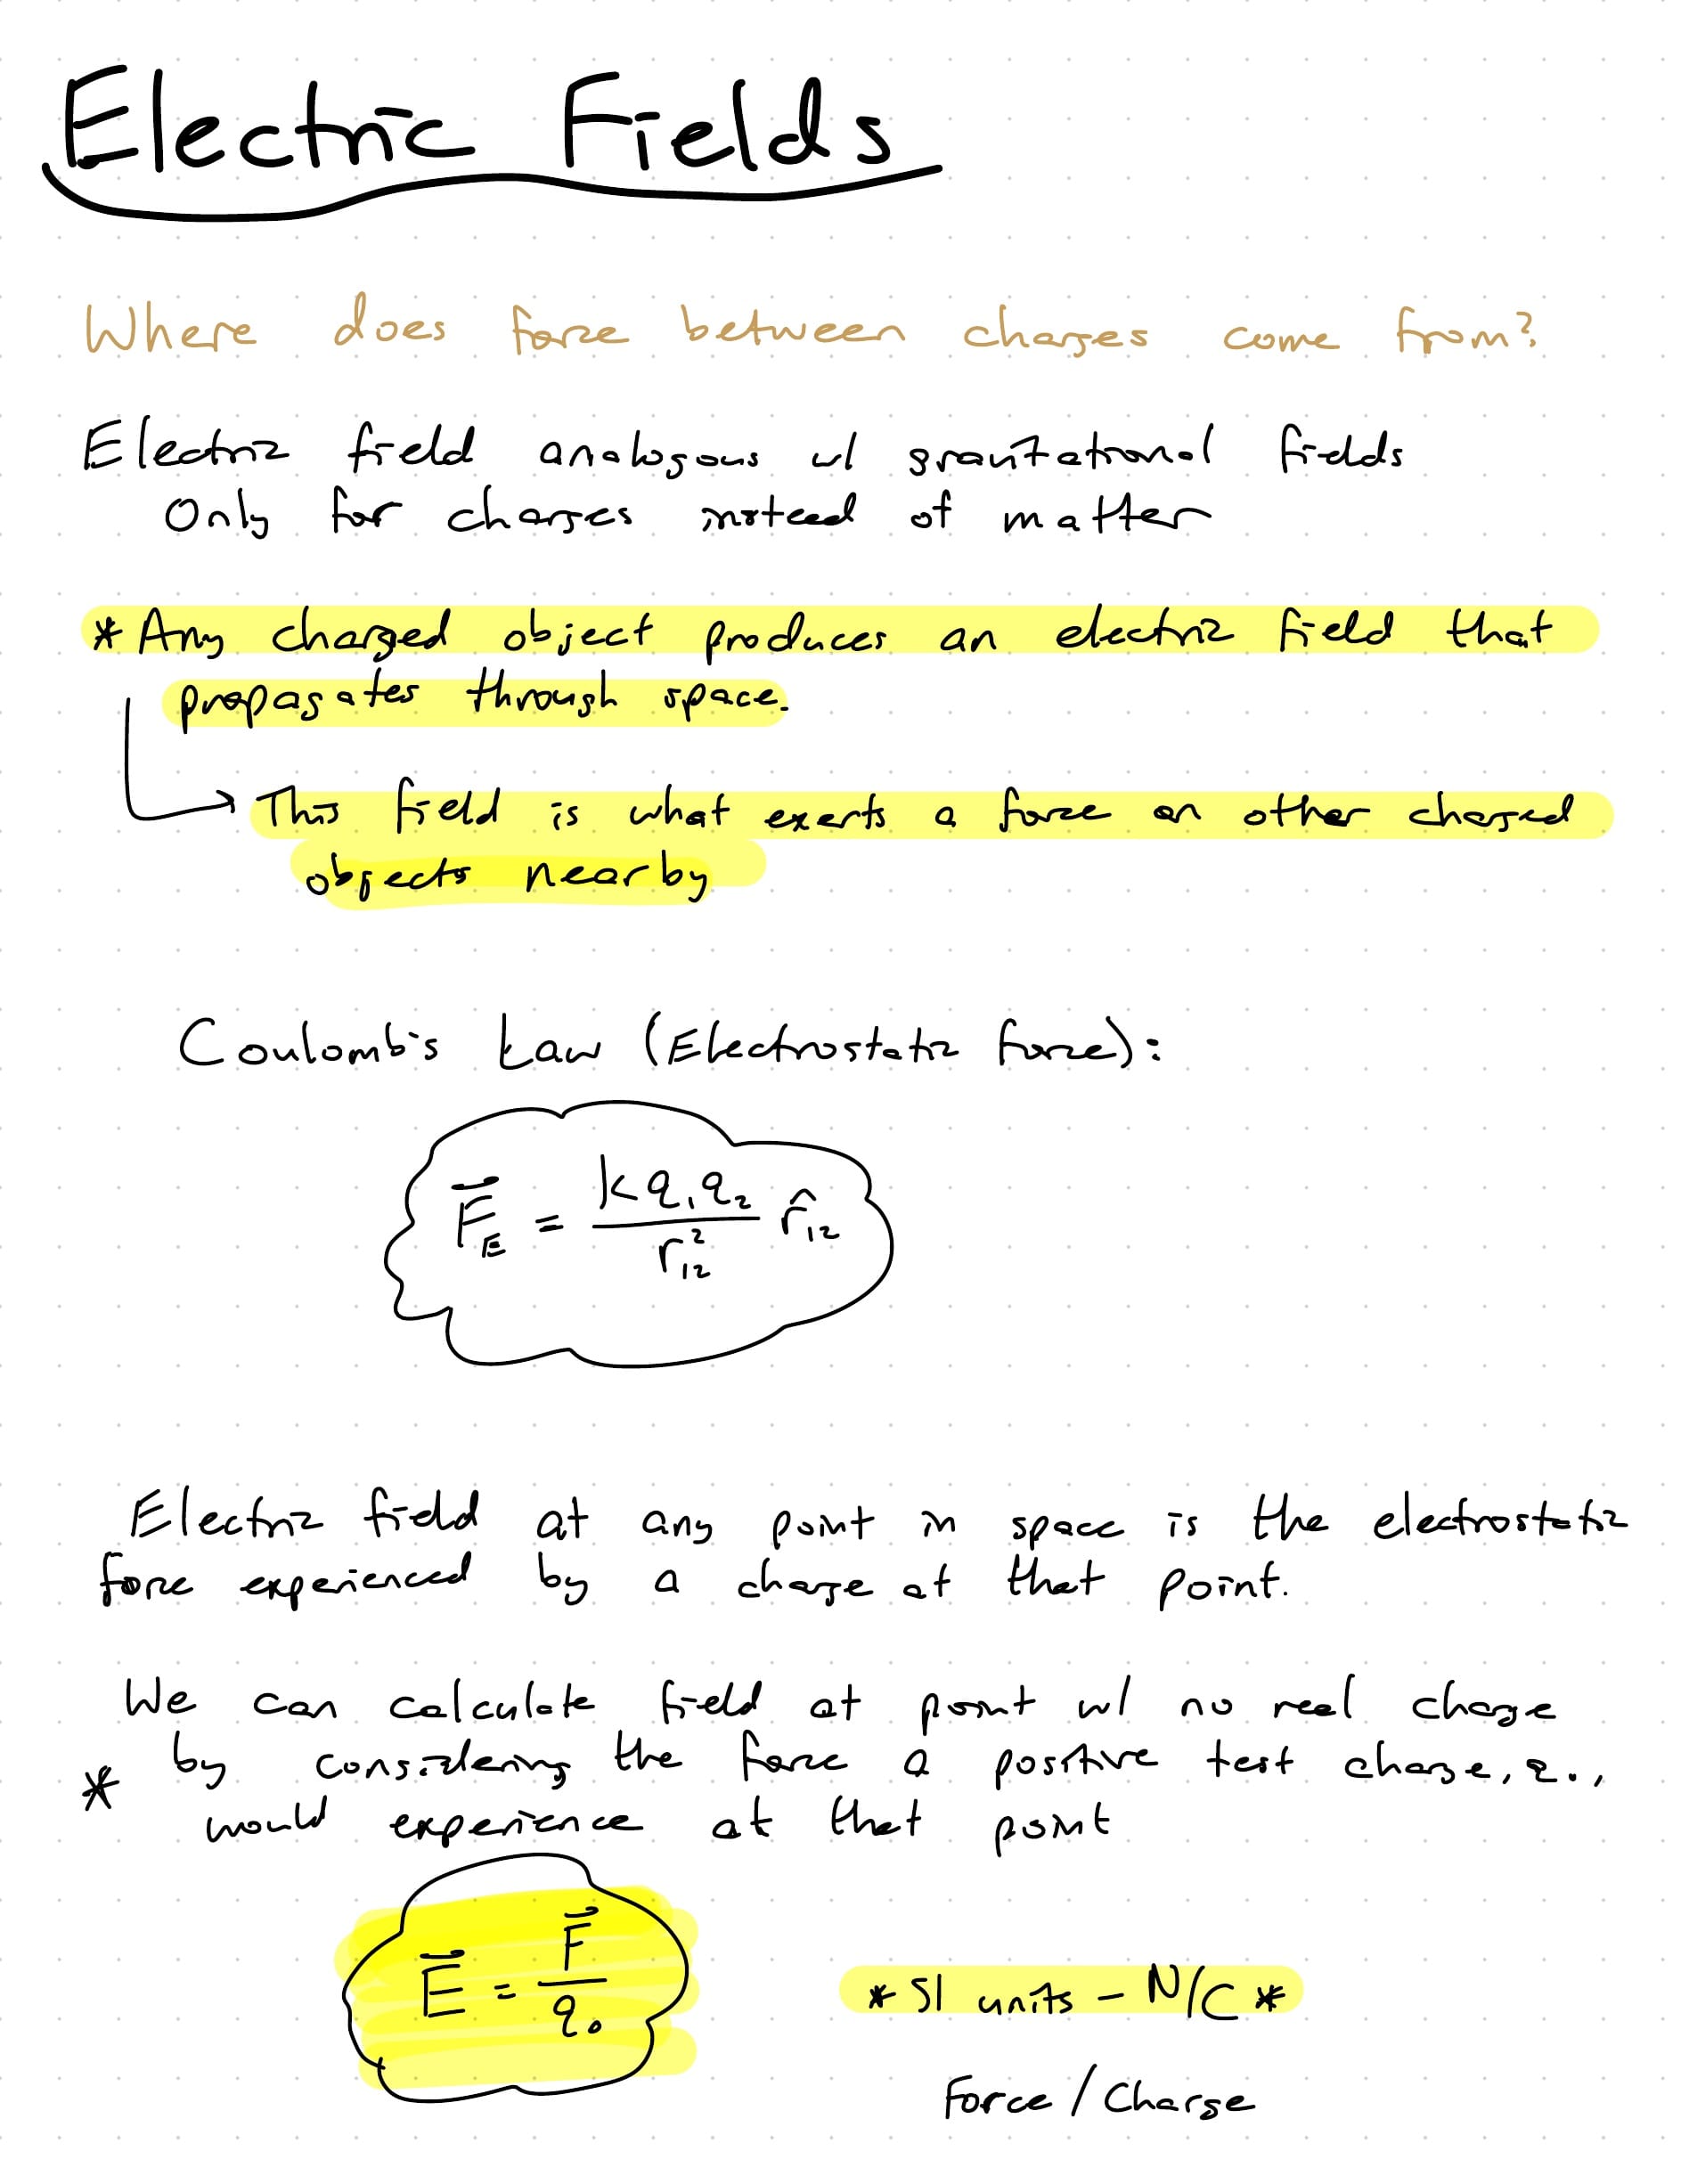 Electric Fields
Where does force between charges come from?
Electric field analogous w/ gravitational fields
Only for charges instead of matter
* Any charged object produces an electric field that
propagates through space.
→ This field is what exerts a force on other charged
objects nearby
Coulomb's Law (Electrostatic force):
F⃗_E = kq₁q₂ / r₁₂² r̂₁₂
Electric field at any point in space is the electrostatic
force experienced by a charge at that point.
We can calculate field at point w/ no real charge
* by considering the force a positive test charge, q₀,
would experience at that point
E⃗ = F⃗ / q₀
* SI units - N/C *
Force / Charge